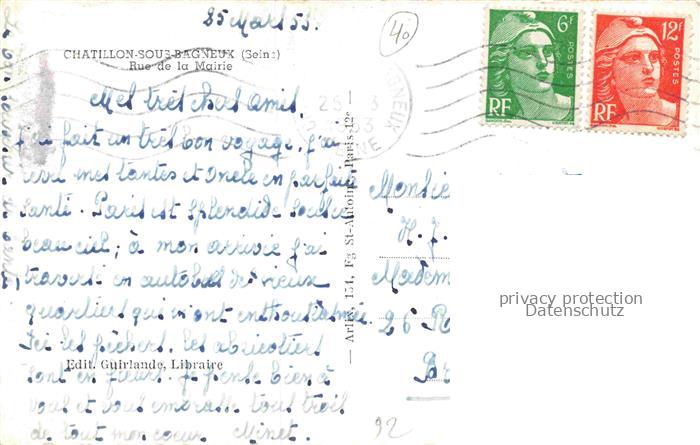 25 Mars 53.
40
CHATILLON-SOUS-BAGNEUX (Seine)
Rue de la Mairie
Mes très chers amis,
J'ai fait un très bon voyage, j'ai
revu mes tantes et oncle en parfaite
santé. Paris est splendide sous le
beau ciel; à mon arrivée j'ai
traversé en autobus des vieux
quartiers qui m'ont enthousiasmée.
Ici les pêchers, les abricotiers
Edit. Guirlande, Libraire
sont en fleurs. Je pense bien à
vous et vous embrasse tous trois
de tout mon coeur Minet.
— Arlix, 154, Fg St-Antoine, Paris-12e —
6F
POSTES
RF
12F
POSTES
RF
Monsie
H. J.
Madem
26 R
Pa
92
privacy protection
Datenschutz